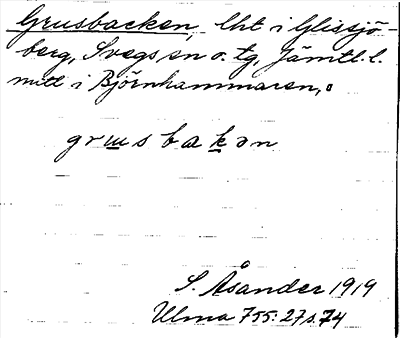 Grusbacken, lht i Glissjö-
berg, Svegs sn o. tg, Jämtl. l.
mitt i Björnhammaren,
grusbakən
S. Åsander 1919
Ulma 755:27 s. 74